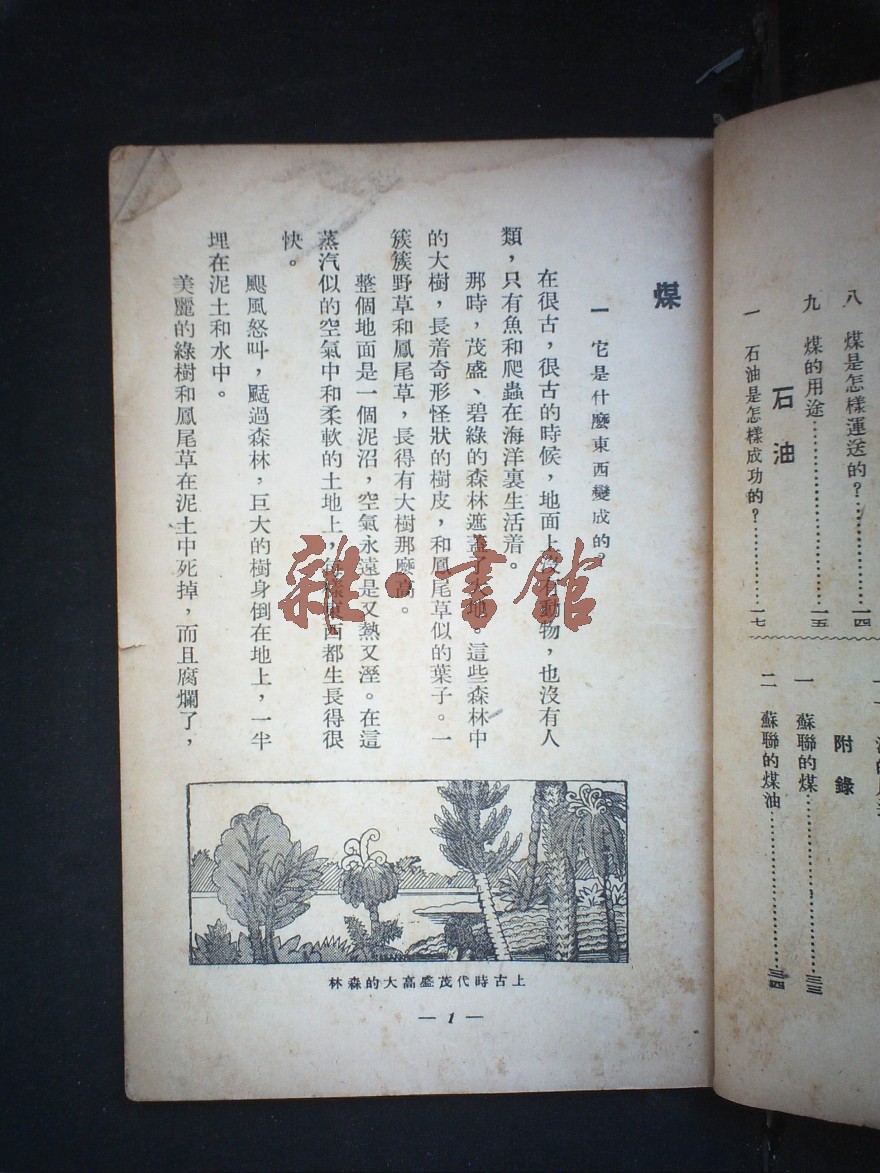 八 煤是怎樣運送的？…………一四
九 煤的用途…………………一五
石油
一 石油是怎樣成功的？………一七
附錄
一 蘇聯的煤…………………三三
二 蘇聯的煤油………………三四
煤
一 它是什麼東西變成的？
在很古，很古的時候，地面上沒有動物，也沒有人
類，只有魚和爬蟲在海洋裏生活着。
那時，茂盛、碧綠的森林遮蓋了大地。這些森林中
的大樹，長着奇形怪狀的樹皮，和鳳尾草似的葉子。一
簇簇野草和鳳尾草，長得有大樹那麼高。
整個地面是一個泥沼，空氣永遠是又熱又溼。在這
蒸汽似的空氣中和柔軟的土地上，每樣東西都生長得很
快。
颶風怒叫，颳過森林，巨大的樹身倒在地上，一半
埋在泥土和水中。
美麗的綠樹和鳳尾草在泥土中死掉，而且腐爛了，
上古時代茂盛高大的森林
— 1 —
雜·書館